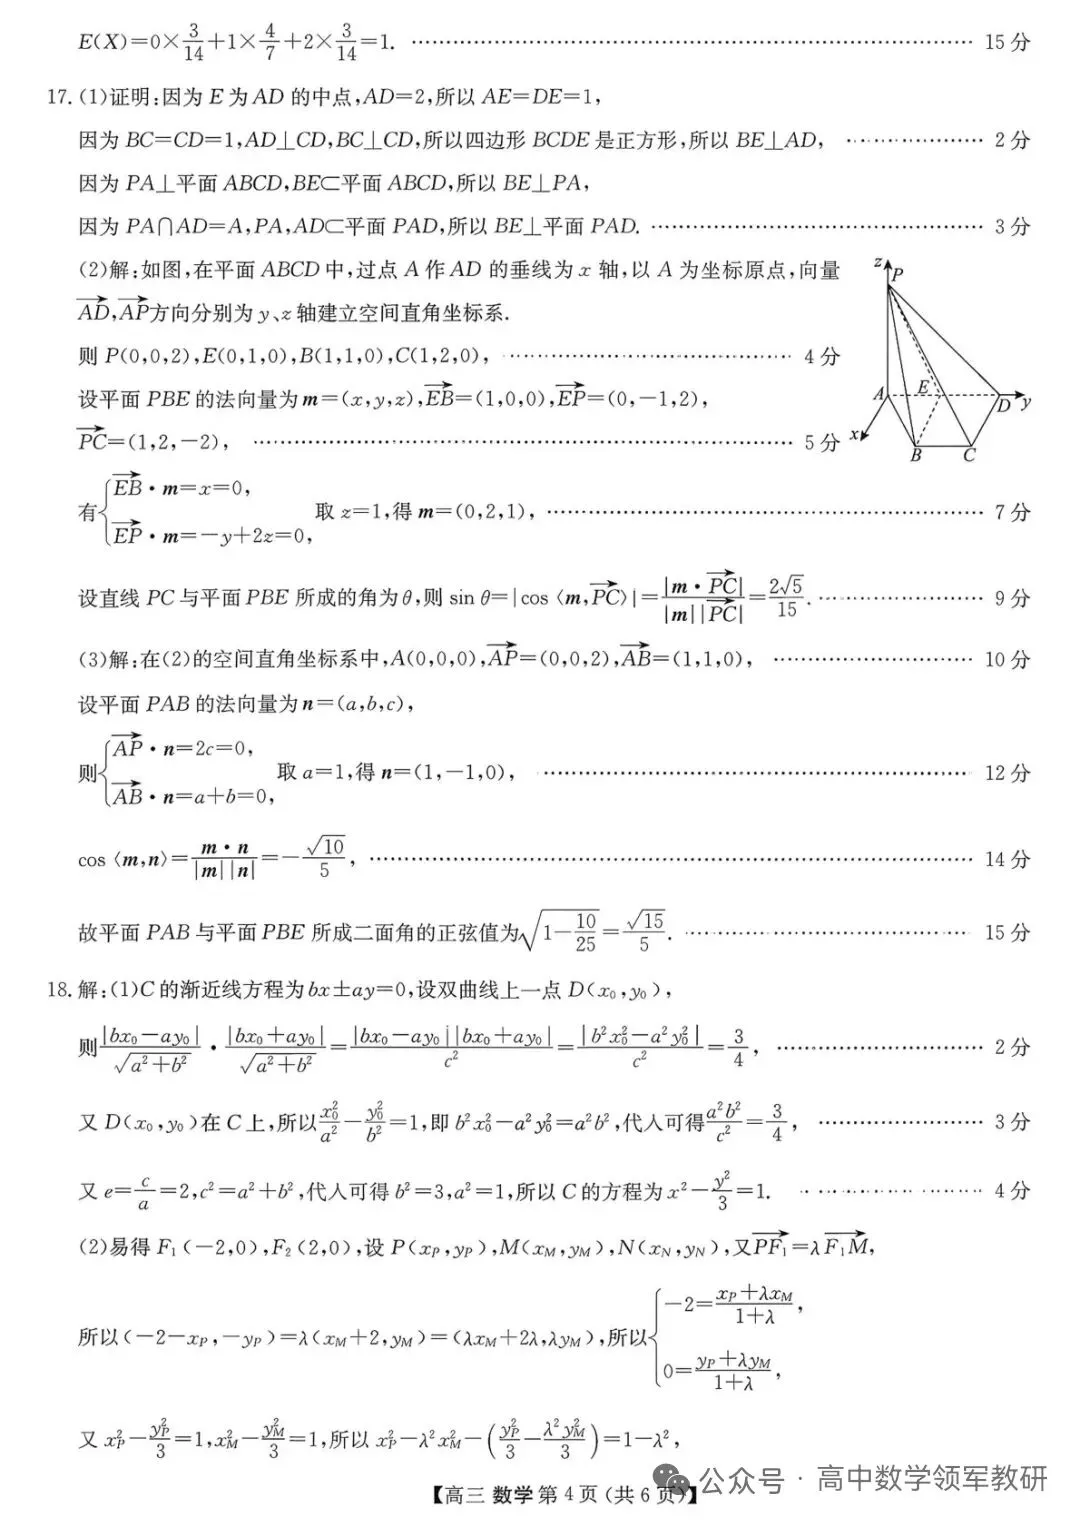 E(X)=0×3/14+1×4/7+2×3/14=1. …………… 15 分
17.(1)证明:因为 E 为 AD 的中点,AD=2,所以 AE=DE=1,
因为 BC=CD=1,AD⊥CD,BC⊥CD,所以四边形 BCDE 是正方形,所以 BE⊥AD, …………… 2 分
因为 PA⊥平面 ABCD,BE⊂平面 ABCD,所以 BE⊥PA,
因为 PA∩AD=A,PA,AD⊂平面 PAD,所以 BE⊥平面 PAD. …………… 3 分
(2)解:如图,在平面 ABCD 中,过点 A 作 AD 的垂线为 x 轴,以 A 为坐标原点,向量
AD→,AP→方向分别为 y、z 轴建立空间直角坐标系.
则 P(0,0,2),E(0,1,0),B(1,1,0),C(1,2,0), …………… 4 分
设平面 PBE 的法向量为 m=(x,y,z),EB→=(1,0,0),EP→=(0,-1,2),
PC→=(1,2,-2), …………… 5 分
z
P
A
E
D
y
x
B
C
有{EB→·m=x=0, EP→·m=-y+2z=0, 取 z=1,得 m=(0,2,1), …………… 7 分
设直线 PC 与平面 PBE 所成的角为 θ,则 sin θ=|cos〈m,PC→〉|=|m·PC→|/|m||PC→|=2√5/15. …………… 9 分
(3)解:在(2)的空间直角坐标系中,A(0,0,0),AP→=(0,0,2),AB→=(1,1,0), …………… 10 分
设平面 PAB 的法向量为 n=(a,b,c),
则{AP→·n=2c=0, AB→·n=a+b=0, 取 a=1,得 n=(1,-1,0), …………… 12 分
cos〈m,n〉=m·n/|m||n|=-√10/5, …………… 14 分
故平面 PAB 与平面 PBE 所成二面角的正弦值为√(1-10/25)=√15/5. …………… 15 分
18.解:(1)C 的渐近线方程为 bx±ay=0,设双曲线上一点 D(x₀,y₀),
则|bx₀-ay₀|/√(a²+b²)·|bx₀+ay₀|/√(a²+b²)=|bx₀-ay₀||bx₀+ay₀|/c²=|b²x₀²-a²y₀²|/c²=3/4, …………… 2 分
又 D(x₀,y₀)在 C 上,所以x₀²/a²-y₀²/b²=1,即 b²x₀²-a²y₀²=a²b²,代入可得a²b²/c²=3/4, …………… 3 分
又 e=c/a=2,c²=a²+b²,代入可得 b²=3,a²=1,所以 C 的方程为 x²-y²/3=1. …………… 4 分
(2)易得 F₁(-2,0),F₂(2,0),设 P(x_P,y_P),M(x_M,y_M),N(x_N,y_N),又PF₁→=λF₁M→,
所以(-2-x_P,-y_P)=λ(x_M+2,y_M)=(λx_M+2λ,λy_M),所以{-2=(x_P+λx_M)/(1+λ), 0=(y_P+λy_M)/(1+λ),
又 x_P²-y_P²/3=1,x_M²-y_M²/3=1,所以 x_P²-λ²x_M²-(y_P²/3-λ²y_M²/3)=1-λ²,
公众号·高中数学领军教研
【高三 数学 第 4 页(共 6 页)】